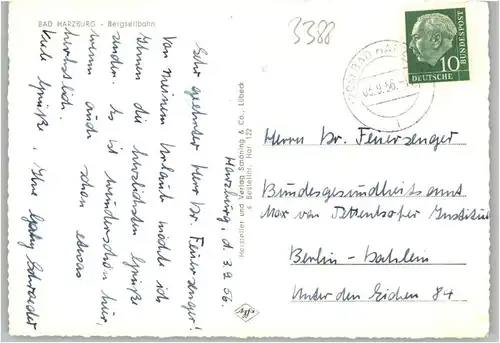 BAD HARZBURG - Bergseilbahn
3388
Harzburg, d. 3.9.56.
Sehr geehrter Herr Dr. Feuerzenger!
Von meinem Urlaub möchte ich
Ihnen die herzlichsten Grüße
senden. Es ist wunderschön hier,
wenn auch schon etwas
herbstlich.
Viele Grüße, Ihre
Schroeder
Hersteller und Verlag Schöning & Co., Lübeck
Bestellnr. Har 122
DEUTSCHE
BUNDESPOST
10
Herrn Dr. Feuerzenger
Bundesgesundheitsamt
Max von Pettenkofer Institut
Berlin-Dahlem
Unter den Eichen 84